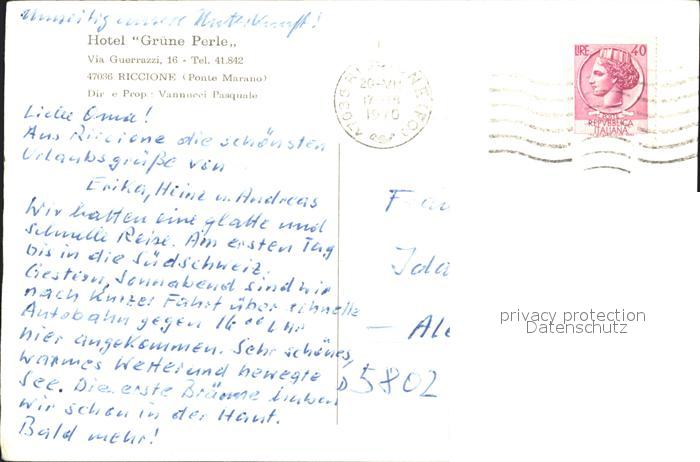 unsere Unterkunft!
Hotel "Grüne Perle„
Via Guerrazzi, 16 - Tel. 41.842
47036 RICCIONE (Ponte Marano)
Dir e Prop: Vannucci Pasquale
47036 RICCIONE (FO)
1970
LIRE 40
POSTE
REPVBBLICA
ITALIANA
Liebe Oma!
Aus Riccione die schönsten
Urlaubsgrüße von
Erika, Heinz u. Andreas
Wir hatten eine glatte und
schnelle Reise. Am ersten Tag
bis in die Südschweiz.
Gestern, Sonnabend sind wir
nach kurzer Fahrt über schnelle
Autobahn gegen 16⁰⁰ Uhr
hier angekommen. Sehr schönes,
warmes Wetter und bewegte
See. Die erste Bräune haben
wir schon in der Haut.
Bald mehr!
Ida
D 5802
privacy protection
Datenschutz